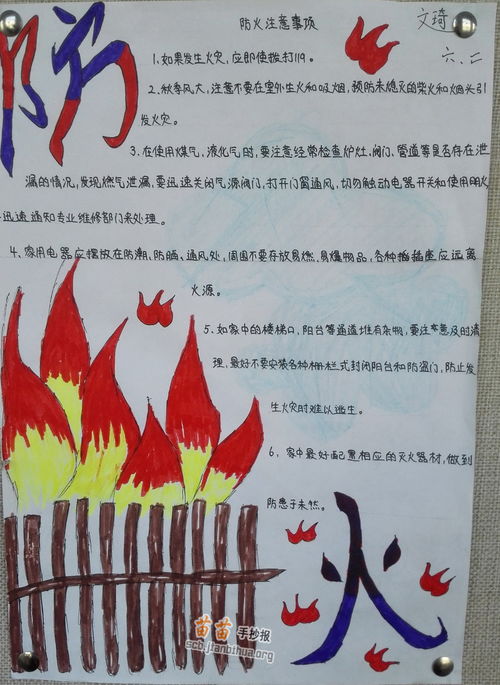 防火
防火注意事项
文琦
六、二
1、如果发生火灾,应即使拨打119。
2、秋季风大,注意不要在室外生火和吸烟,预防未熄灭的柴火和烟头引
发火灾。
3、在使用煤气,液化气时,要注意经常检查炉灶、阀门、管道等是否存在泄
漏的情况,发现燃气泄漏,要迅速关闭气源阀门,打开门窗通风,切勿触动电器开关和使用明火
迅速通知专业维修部门来处理。
4、家用电器应摆放在防潮、防晒、通风处,周围不要存放易燃、易爆物品,各种插插座应远离
火源。
5、如家中的楼梯口,阳台等通道堆有杂物,要注意及时清
理,最好不要安装各种栅栏式封闭阳台和防盗门,防止发
生火灾时难以逃生。
6、家中最好配置相应的灭火器材,做到
防患于未然。
苗苗手抄报
scb.jianbihua.org